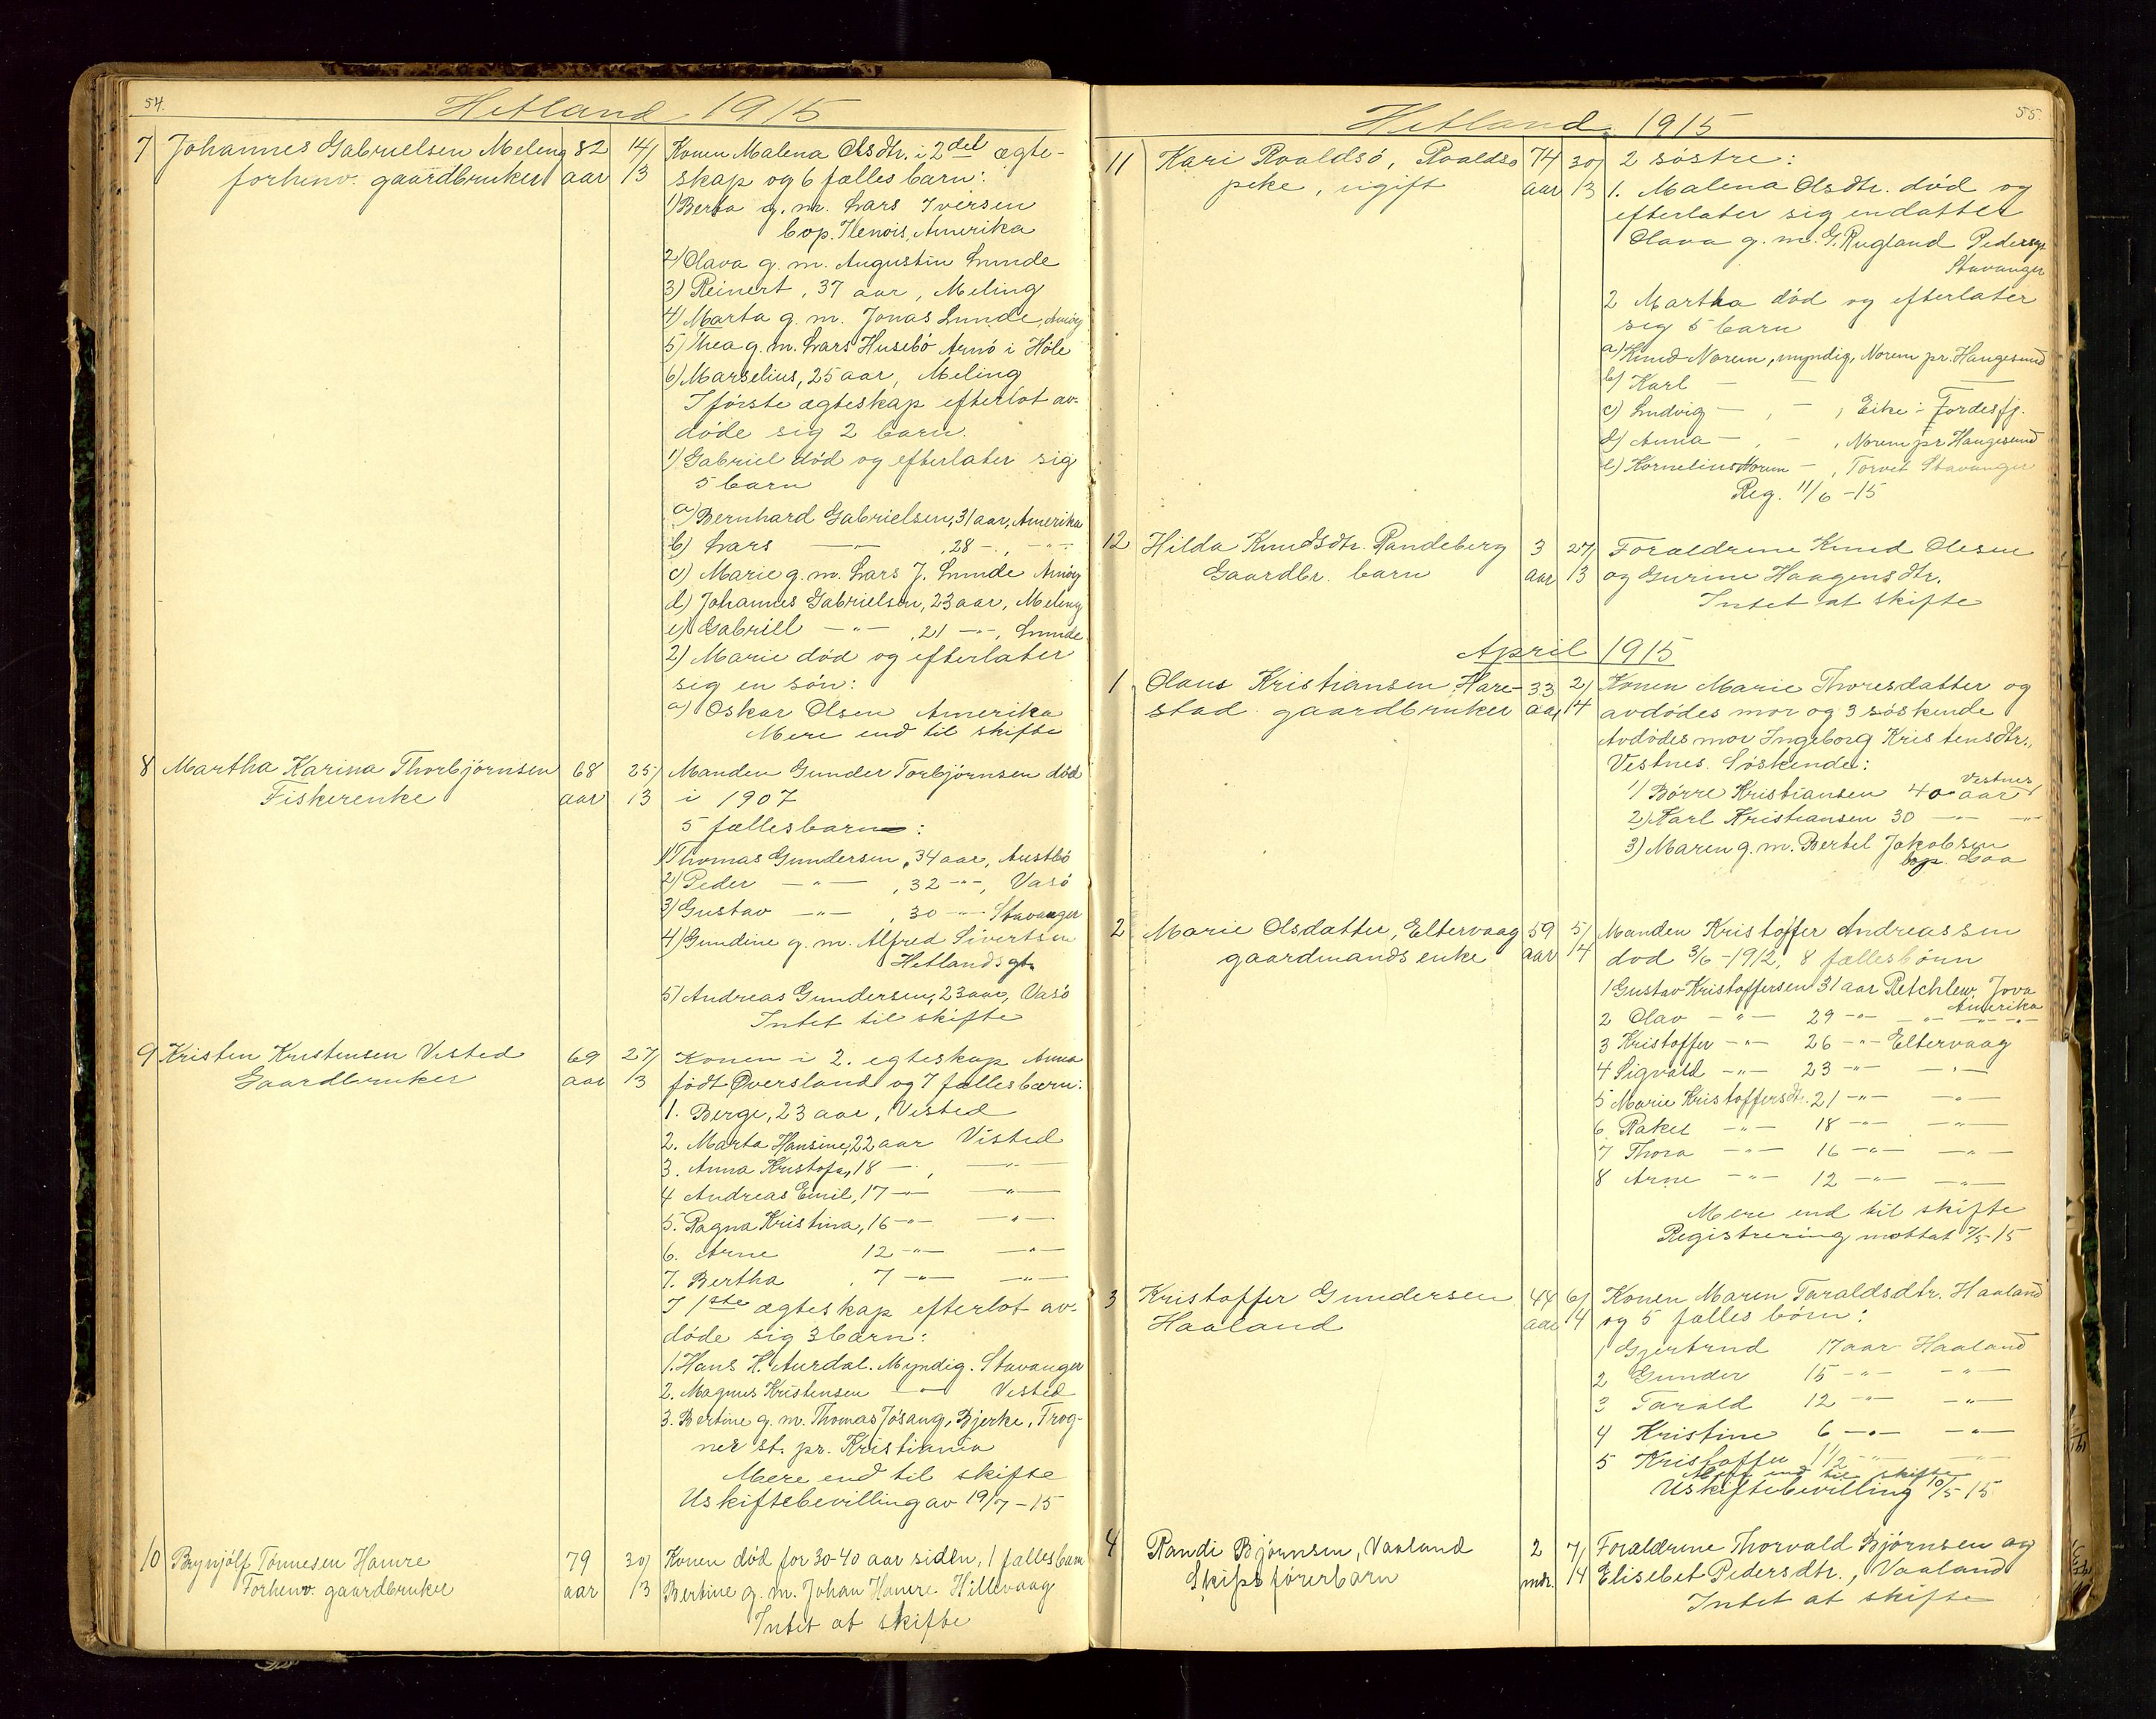 54.
Hetland 1915
7 Johannes Gabrielsen Meling 82 14/ Konen Malena Olsdtr. i 2del ægte-
forhenv. gaardbruker aar 3 skap og 6 fælles barn:
1) Berta g. m. Lars Iversen
bop. Ilenois, Amerika
2) Olava g. m. Augustin Lunde
3) Reinert, 37 aar, Meling
4) Marta g. m. Jonas Lunde, Amöy
5) Thea g. m. Lars Husebö Arnö i Höle
6) Marselius, 25 aar, Meling
I förste ægteskap efterlot av-
döde sig 2 barn.
1) Gabriel död og efterlater sig
5 barn
a) Bernhard Gabrielsen, 31 aar, Amerika
b) Lars — " — , 28 — , — " —
c) Marie g. m. Lars J. Lunde Amöy
d) Johannes Gabrielsen, 23 aar, Meling
e) Gabriell — " — , 21 — " —, Lunde
2) Marie död og efterlater
sig en sön:
a) Oskar Olsen Amerika
Mere end til skifte
8 Martha Karina Thorbjörnsen 68 25/ Manden Gunder Torbjörnsen död
Fiskerenke aar 3 i 1907
5 fællesbarn:
1) Thomas Gundersen, 34 aar, Austbö
2) Peder — " — , 32 — " —, Vasö
3) Gustav — " — , 30 — " — Stavanger
4) Gundine g. m. Alfred Sivertsen
Hetlandsgt.
5) Andreas Gundersen, 23 aar, Vasö
Intet til skifte
9 Kristen Kristensen Visted 69 27/ Konen i 2. egteskap Anna
Gaardbruker aar 3 født Øversland og 7 fællesbarn:
1. Berge, 23 aar, Visted
2. Marta Hansine, 22 aar Visted
3. Anna Kristofa, 18 — , — " —
4 Andreas Emil, 17 — " — — " —
5. Ragna Kristina, 16 — " — — " —
6. Arne 12 — " — — " —
7. Bertha , 7 — " — — " —
I 1ste ægteskap efterlot av-
döde sig 3 barn:
1. Hans K. Aurdal. Myndig. Stavanger
2. Magnus Kristensen — " — Visted
3. Bertine g. m. Thomas Jösang, Bjerke, Trog-
ner st. pr. Kristiania
Mere end til skifte
Uskiftebevilling av 19/7 – 15
10 Brynjölf Tönnesen Hamre 79 30/ Konen død for 30-40 aar siden, 1 fælles barn
Forhenv. gaardbruker aar 3 Bertine g. m. Johan Hamre Hillevaag
Intet at skifte
55.
Hetland 1915
11 Kari Roaldsö, Roaldsö 74 30/ 2 söstre:
peke, ugift aar 3 1. Malena Olsdtr. död og
efterlater sig en datter
Olava g. m. G. Rugland Pedersgt.
Stavanger
2 Martha död og efterlater
sig 5 barn
a) Knud Norem, myndig, Norem pr. Haugesund
b) Karl — —
c) Ludvig — , — , Eike i Fördesfj.
d) Anna — , — , Norem pr Haugesund
e) Kornelius Norem — , Torvet Stavanger
Reg. 11/6 – 15
12 Hilda Knudsdtr. Randeberg 3 27/ Foraldrene Knud Olesen
Gaardbr. barn aar 3 og Gurine Haagensdtr.
Intet at skifte
April 1915
1 Olaus Kristiansen Hare- 33 2/ Konen Marie Thoresdatter og
stad gaardbruker aar 4 avdödes mor og 3 söskende
Avdödes mor Ingeborg Kristensdtr.,
Vestnes. Söskende:
1) Börre Kristiansen 40 aar Vestnes
2) Karl Kristiansen 30 — " — — " —
3) Maren g. m. Bertel Jakobsen
bop.
2 Marie Olsdatter, Eltervaag 59 5/ Manden Kristoffer Andreassen
gaardmands enke aar 4 död 3/6 – 1912, 8 fællesbörn
1 Gustav Kristoffersen 31 aar Jova
Amerika
2 Olav — " — 29 — " — — " — — " —
3 Kristoffer — " — 26 — " — Eltervaag
4 Sigvald — " — 23 — " — — " —
5 Marie Kristoffersdtr. 21 — " — — " —
6 Rakel — " — 18 — " — — " —
7 Thora — " — 16 — " — — " —
8 Arne — " — 12 — " — — " —
Mere end til skifte
Registrering mottat 7/5-15
3 Kristoffer Gundersen 44 6/ Konen Maren Taraldsdtr. Haaland
Haaland aar 4 og 5 fælles börn:
1 Gjertrud 17 aar Haaland
2 Gunder 15 — " — — " —
3 Tarald 12 — " — — " —
4 Kristine 6 — " — — " —
5 Kristoffer 1 1/2 — " — — " —
Mere end til skifte
Uskiftebevilling 10/5 15
4 Randi Bjørnsen, Vaaland 2 7/ Forældrene Thorvald Bjørnsen og
Skipsförerbarn mdr. 4 Elisebet Pedersdtr., Vaaland
Intet at skifte